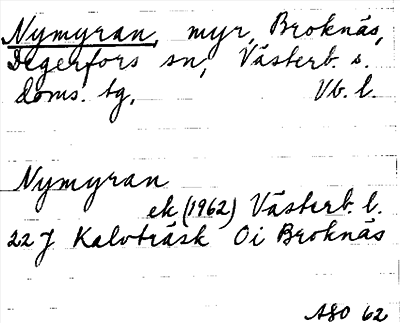 Nymyran, myr, Broknäs,
Degerfors sn, Västerb. s.
doms. tg, Vb. l.
Nymyran
ek (1962) Västerb. l.
22 J Kalvträsk Oi Broknäs
ASO 62